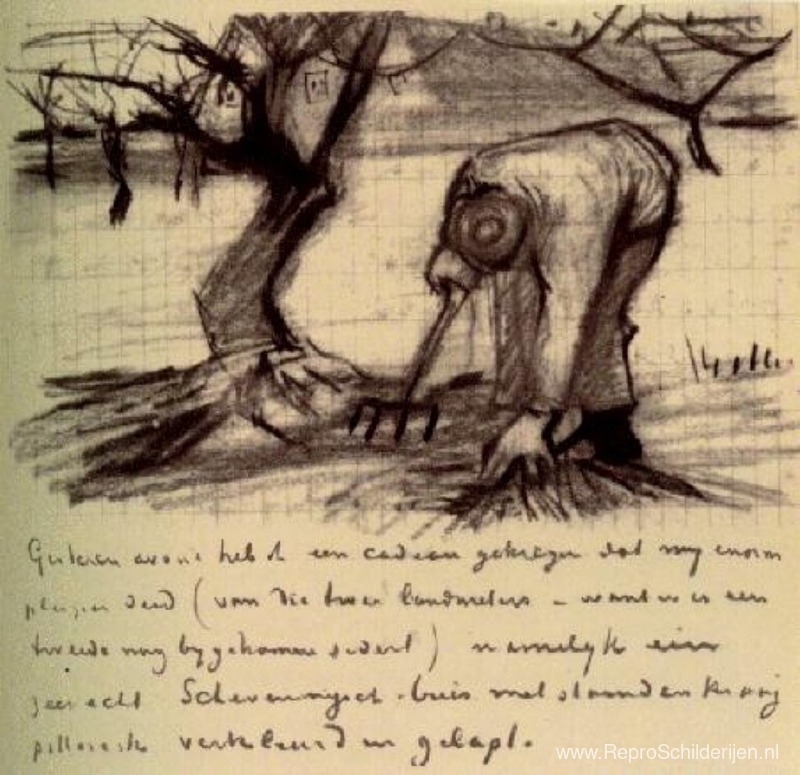 Gisteren avond heb ik een cadeau gekregen dat my enorm
plezier deed (van die twee landmeters – want er is een
tweede nog bygekomen sedert) namelyk een
zeer echt Schevenings buis met staanden kraag
pittoresk verkleurd en gelapt.
www.ReproSchilderijen.nl